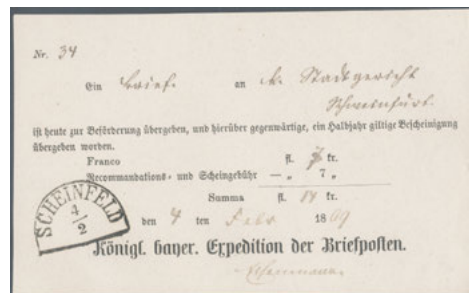 Nr. 34
Ein Brief. an k. Stadtgericht
Schweinfurt.
ist heute zur Beförderung übergeben, und hierüber gegenwärtige, ein Halbjahr giltige Bescheinigung
übergeben worden.
Franco fl. 7 kr.
Recommandations- und Scheingebühr — „ 7 „
Summa fl. 14 kr.
SCHEINFELD
4/2
den 4 ten Febr 1869
Königl. bayer. Expedition der Briefposten.